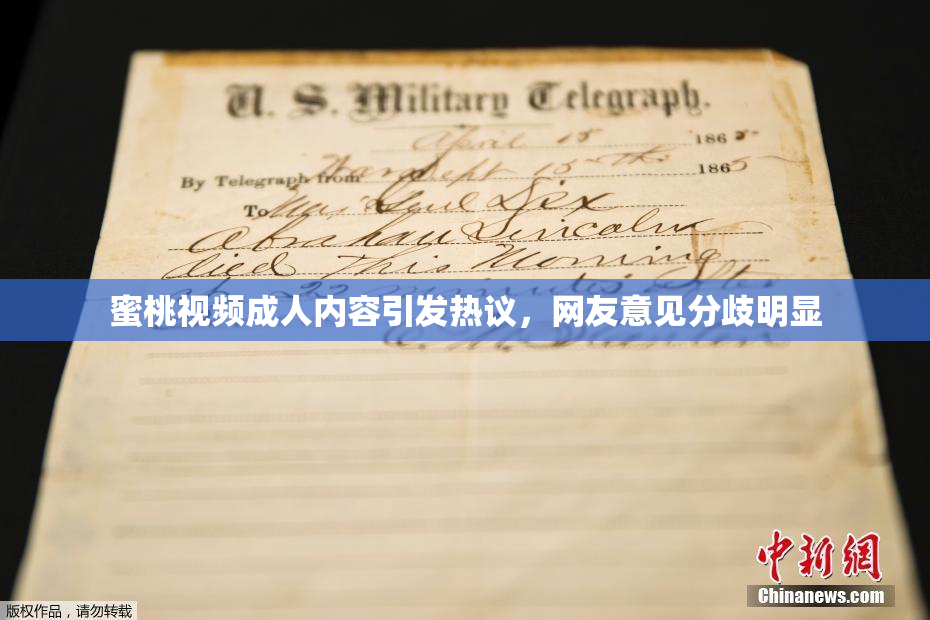 U. S. Military Telegraph.
April 15 1865
By Telegraph from War Dept 15th 1865
To Maj Genl Dix
Abraham Lincoln
died This Morning
at 22 minutes after
蜜桃视频成人内容引发热议，网友意见分歧明显
中新网
Chinanews.com
版权作品，请勿转载